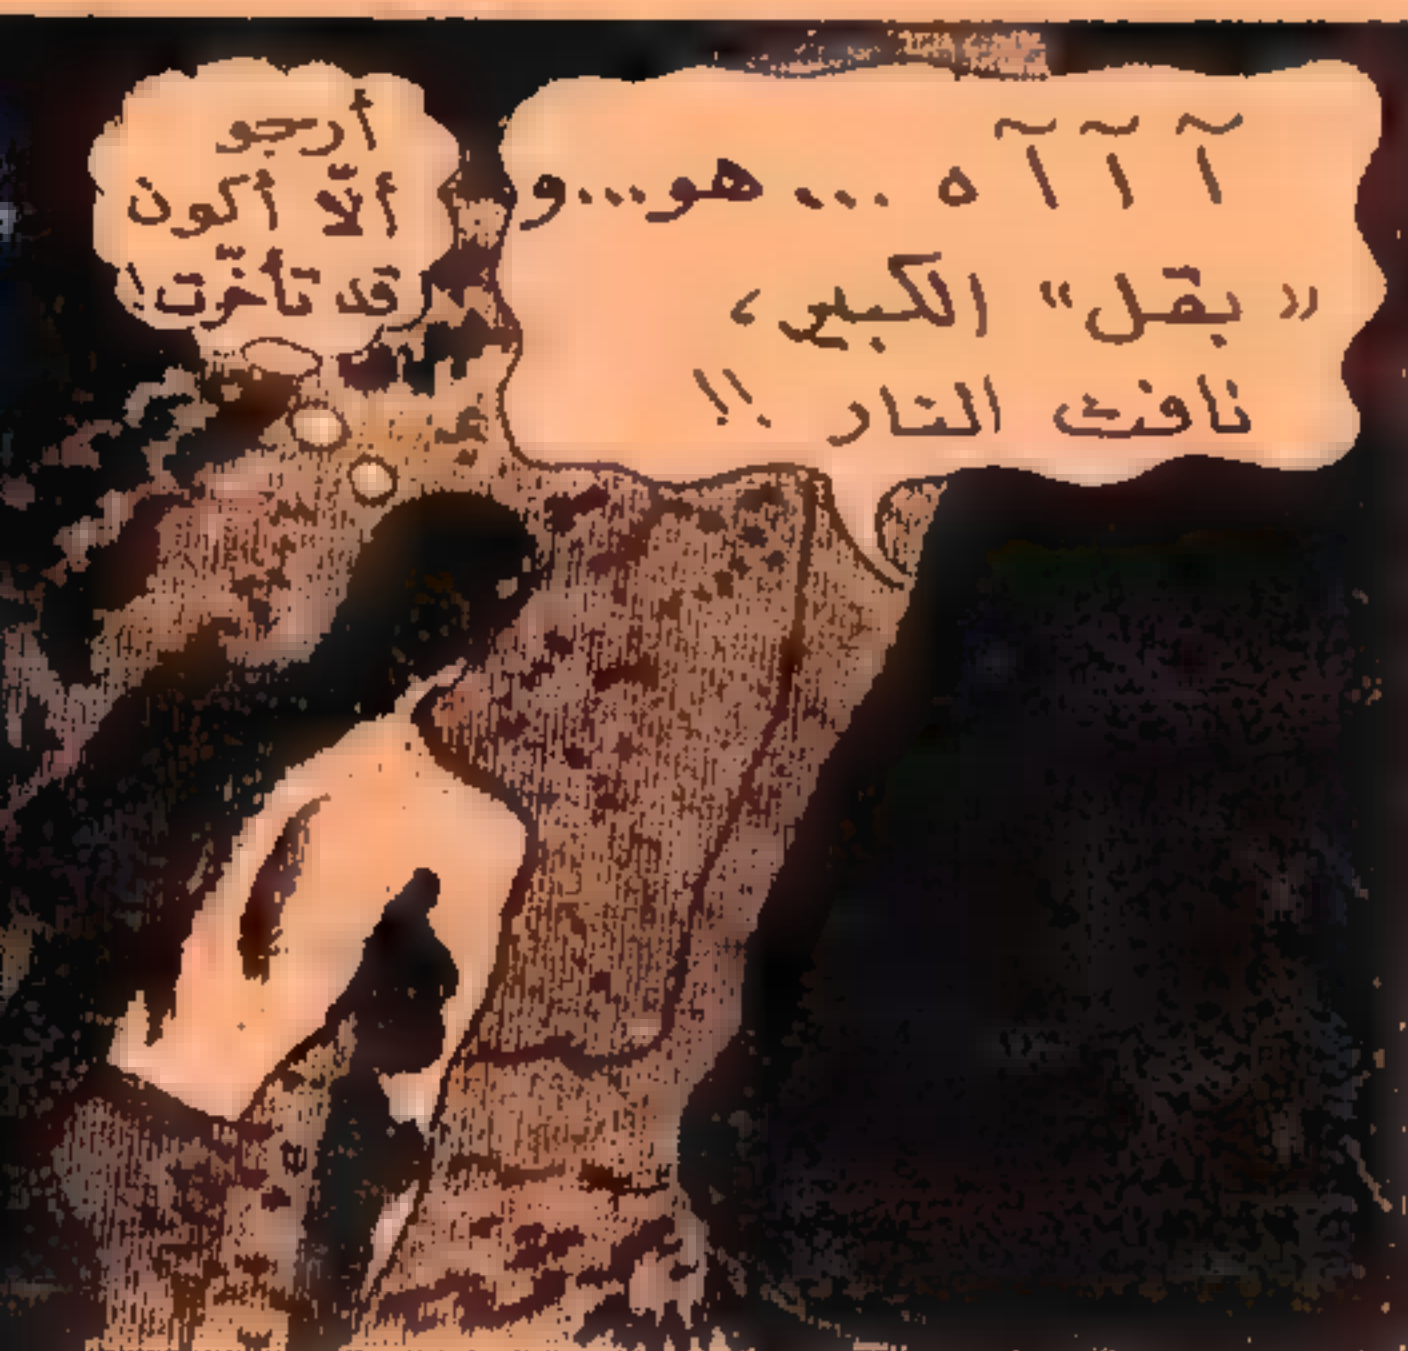 آ آ آ ه ... هو...و
« بقل" الكبير،
نافث النار !!
أرجو
ألّا أكون
قد تأخّرت!